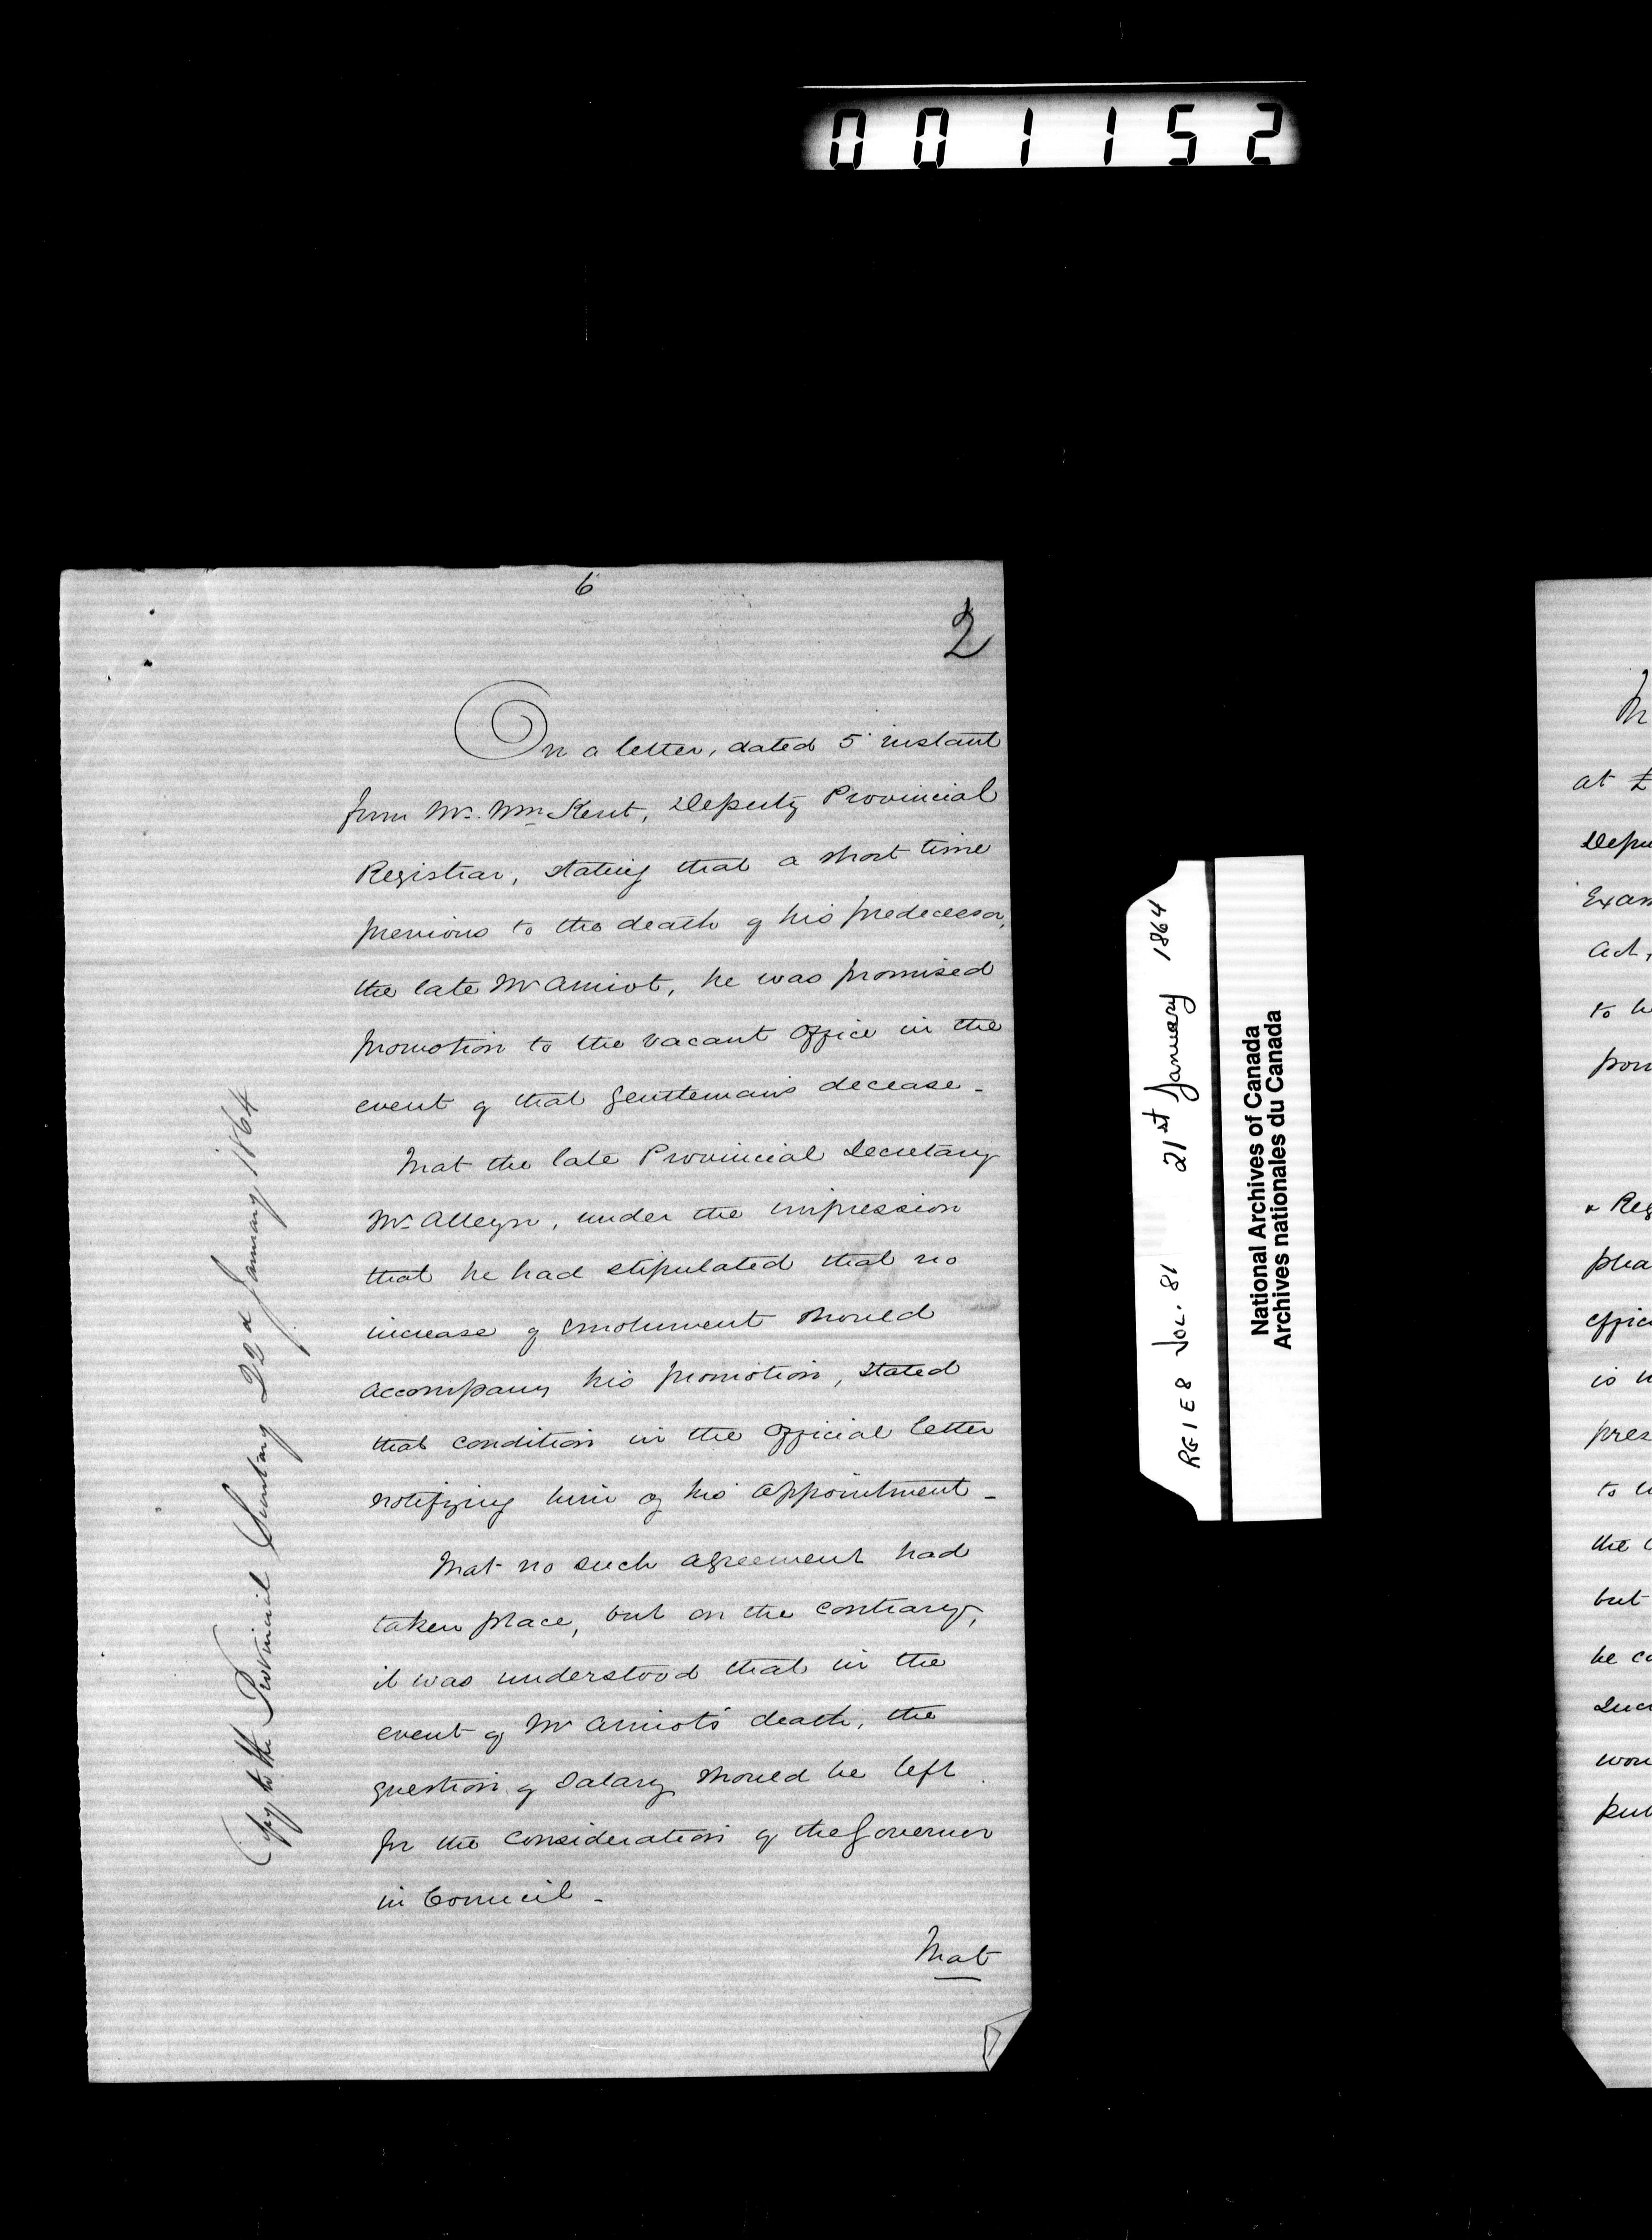 001152
6
2
On a letter, dated 5' instant
from Mr. Wm Kent, Deputy Provincial
Registrar, stating that a short time
previous to the death of his predecessor,
the late Mr Amiot, he was promised
promotion to the vacant Office in the
event of that Gentleman's decease -
That the late Provincial Secretary
Mr. Alleyn, under the impression
that he had stipulated that no
increase of emolument should
accompany his promotion, stated
that condition in the Official letter
notifying him of his appointment -
That no such agreement had
taken place, but on the contrary,
it was understood that in the
event of Mr Amiot's death, the
question of Salary should be left
for the consideration of the Governor
in Council -
That
Copy to the Provincial Secretary 22d January 1864
RG 1 E 8 Vol. 81 21st January 1864
National Archives of Canada
Archives nationales du Canada
at £
Depu
Exam
Act,
to h
& Reg
plea
offic
is
pres
to
the
but
be co
would
pub